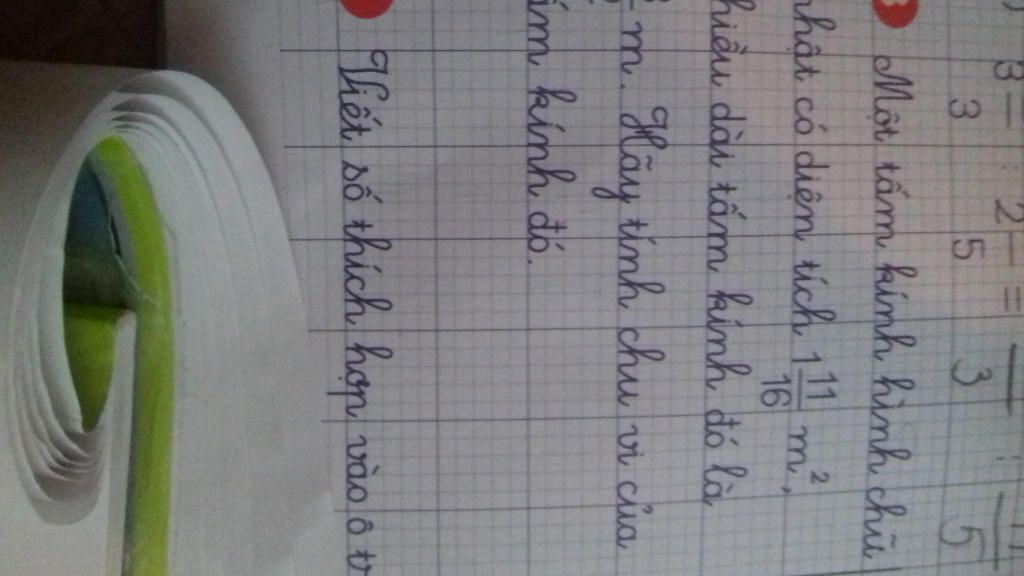 3— : 2— = — : —
3 5 3 5
Một tấm kính hình chữ
nhật có diện tích 1 11/16 m²,
chiều dài tấm kính đó là
m. Hãy tính chu vi của
tấm kính đó.
Viết số thích hợp vào ô tr